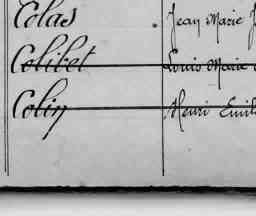 Colas Jean Marie J
Colibet Louis Marie
Colin Henri Emile